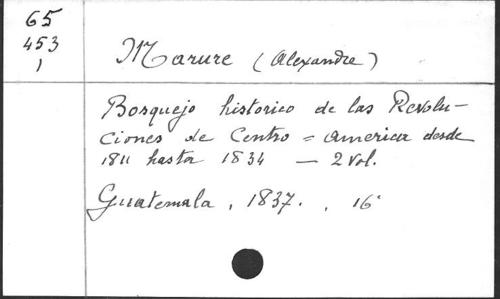 65
453
1
Marure (Alexandre)
Bosquejo historico de las Revolu-
ciones de Centro = america desde
1811 hasta 1834 — 2 vol.
Guatemala, 1837., 16°